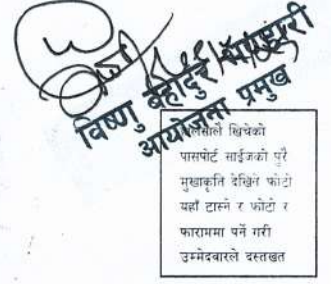 विष्णु बहादुर भण्डारी
आयोजना प्रमुख
खिचेको
पासपोर्ट साईजको पुरै
मुखाकृति देखिने फोटो
यहाँ टास्ने र फोटो र
फाराममा पर्ने गरी
उम्मेदवारले दस्तखत